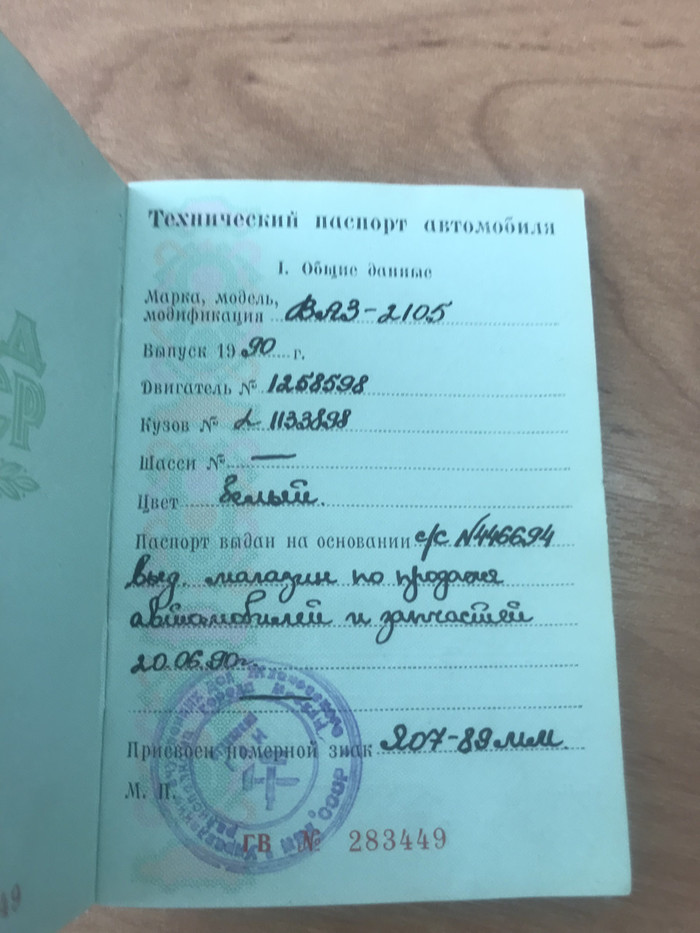 Технический паспорт автомобиля
I. Общие данные
Марка, модель,
модификация ВАЗ-2105
Выпуск 1990 г.
Двигатель № 1258598
Кузов № L 1133898
Шасси № —
Цвет белый.
Паспорт выдан на основании с/с №446694
выд. магазин по продаже
автомобилей и запчастей
20.06.90г.
—
Присвоен номерной знак Я07-89мм.
М. П.
ГВ № 283449
Д
СР
49